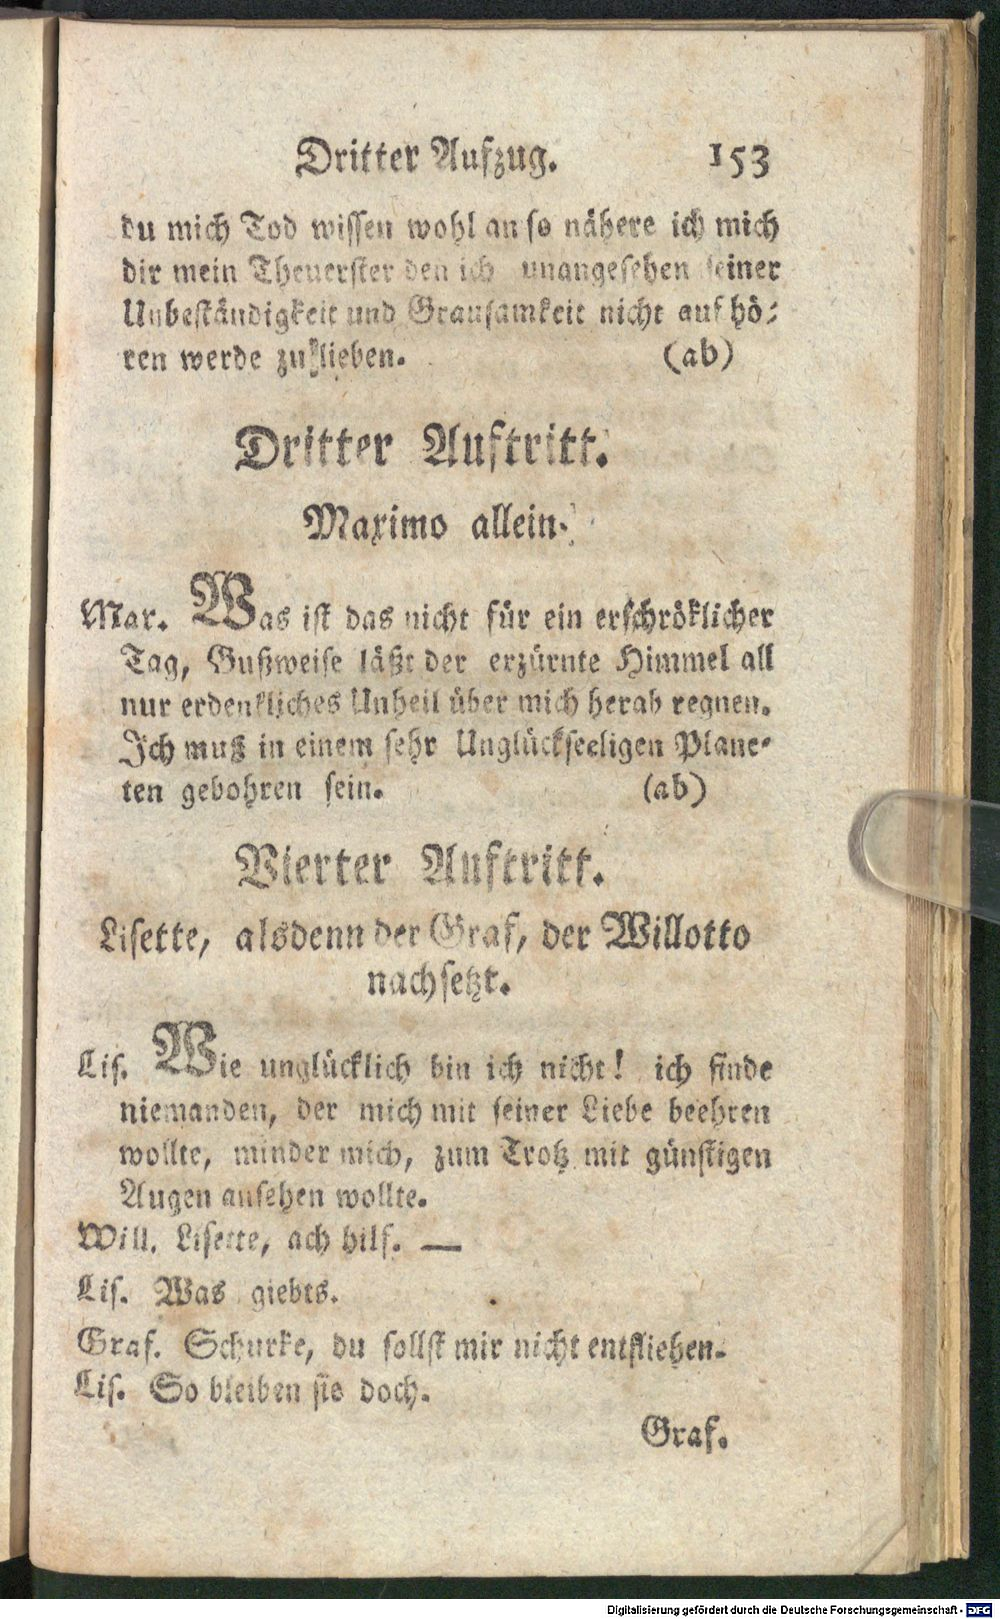 Dritter Aufzug. 153
du mich Tod wissen wohl an so nähere ich mich
dir mein Theuerster den ich unangesehen seiner
Unbeständigkeit und Grausamkeit nicht aufhö-
ren werde zu lieben. (ab)
Dritter Auftritt.
Maximo allein.
Max. Was ist das nicht für ein erschröklicher
Tag, Gußweise läßt der erzürnte Himmel all
nur erdenkliches Unheil über mich herab regnen.
Ich muß in einem sehr Unglückseeligen Plane-
ten gebohren sein. (ab)
Vierter Auftritt.
Lisette, alsdenn der Graf, der Willotto
nachsetzt.
Lis. Wie unglücklich bin ich nicht! ich finde
niemanden, der mich mit seiner Liebe beehren
wollte, minder mich, zum Trotz mit günstigen
Augen ansehen wollte.
Will. Lisette, ach hilf. —
Lis. Was giebts.
Graf. Schurke, du sollst mir nicht entfliehen.
Lis. So bleiben sie doch.
Graf.
Digitalisierung gefördert durch die Deutsche Forschungsgemeinschaft - DFG